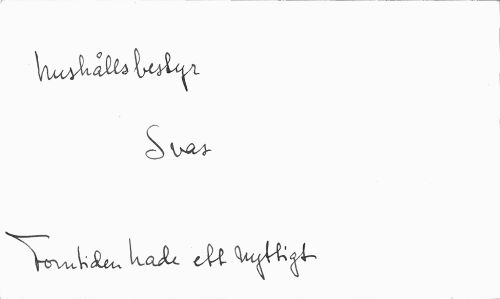 hushållsbestyr
Svar
Forntiden hade ett nyttigt